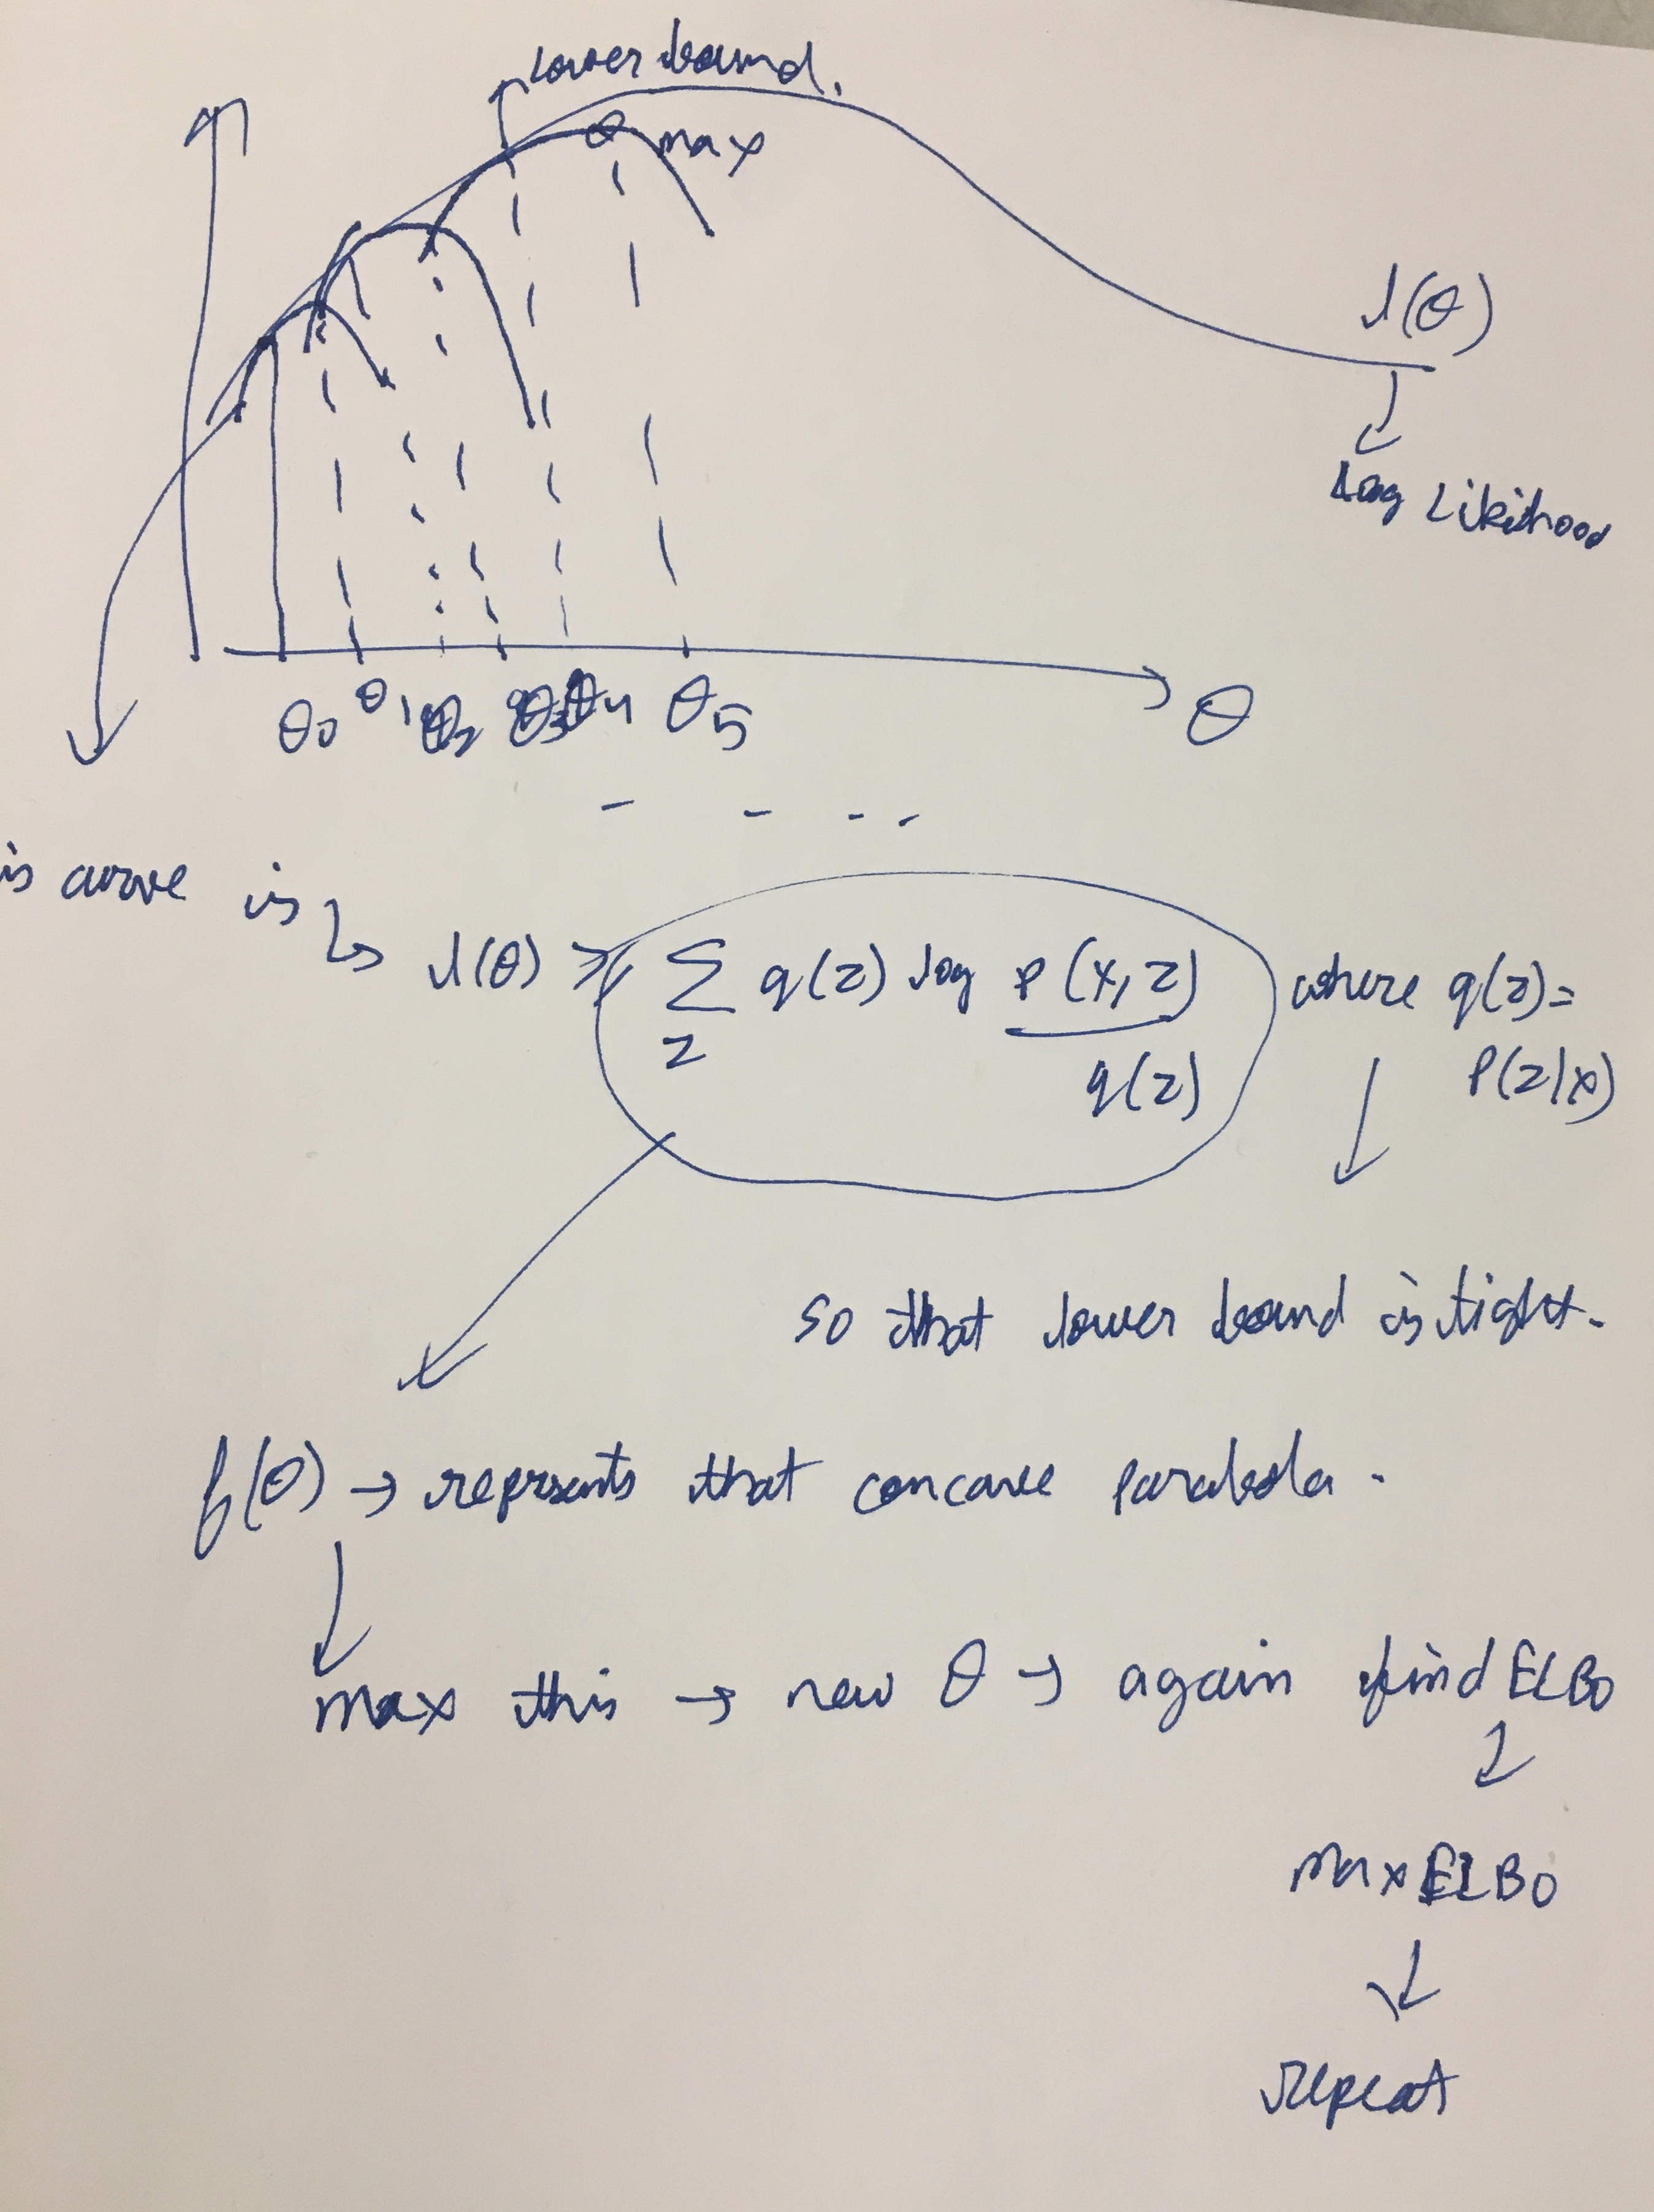 lower bound.
max
l(θ)
Log Likihood
θ0 θ1 θ2 θ3 θ4 θ5 θ
- - - -
is curve is
l(θ) ≥ Σ q(z) log p(x,z) where q(z)=
z q(z) P(z|x)
so that lower bound is tight.
f(θ) → reprsents that concave parabola.
max this → new θ → again find ELBO
max ELBO
repeat